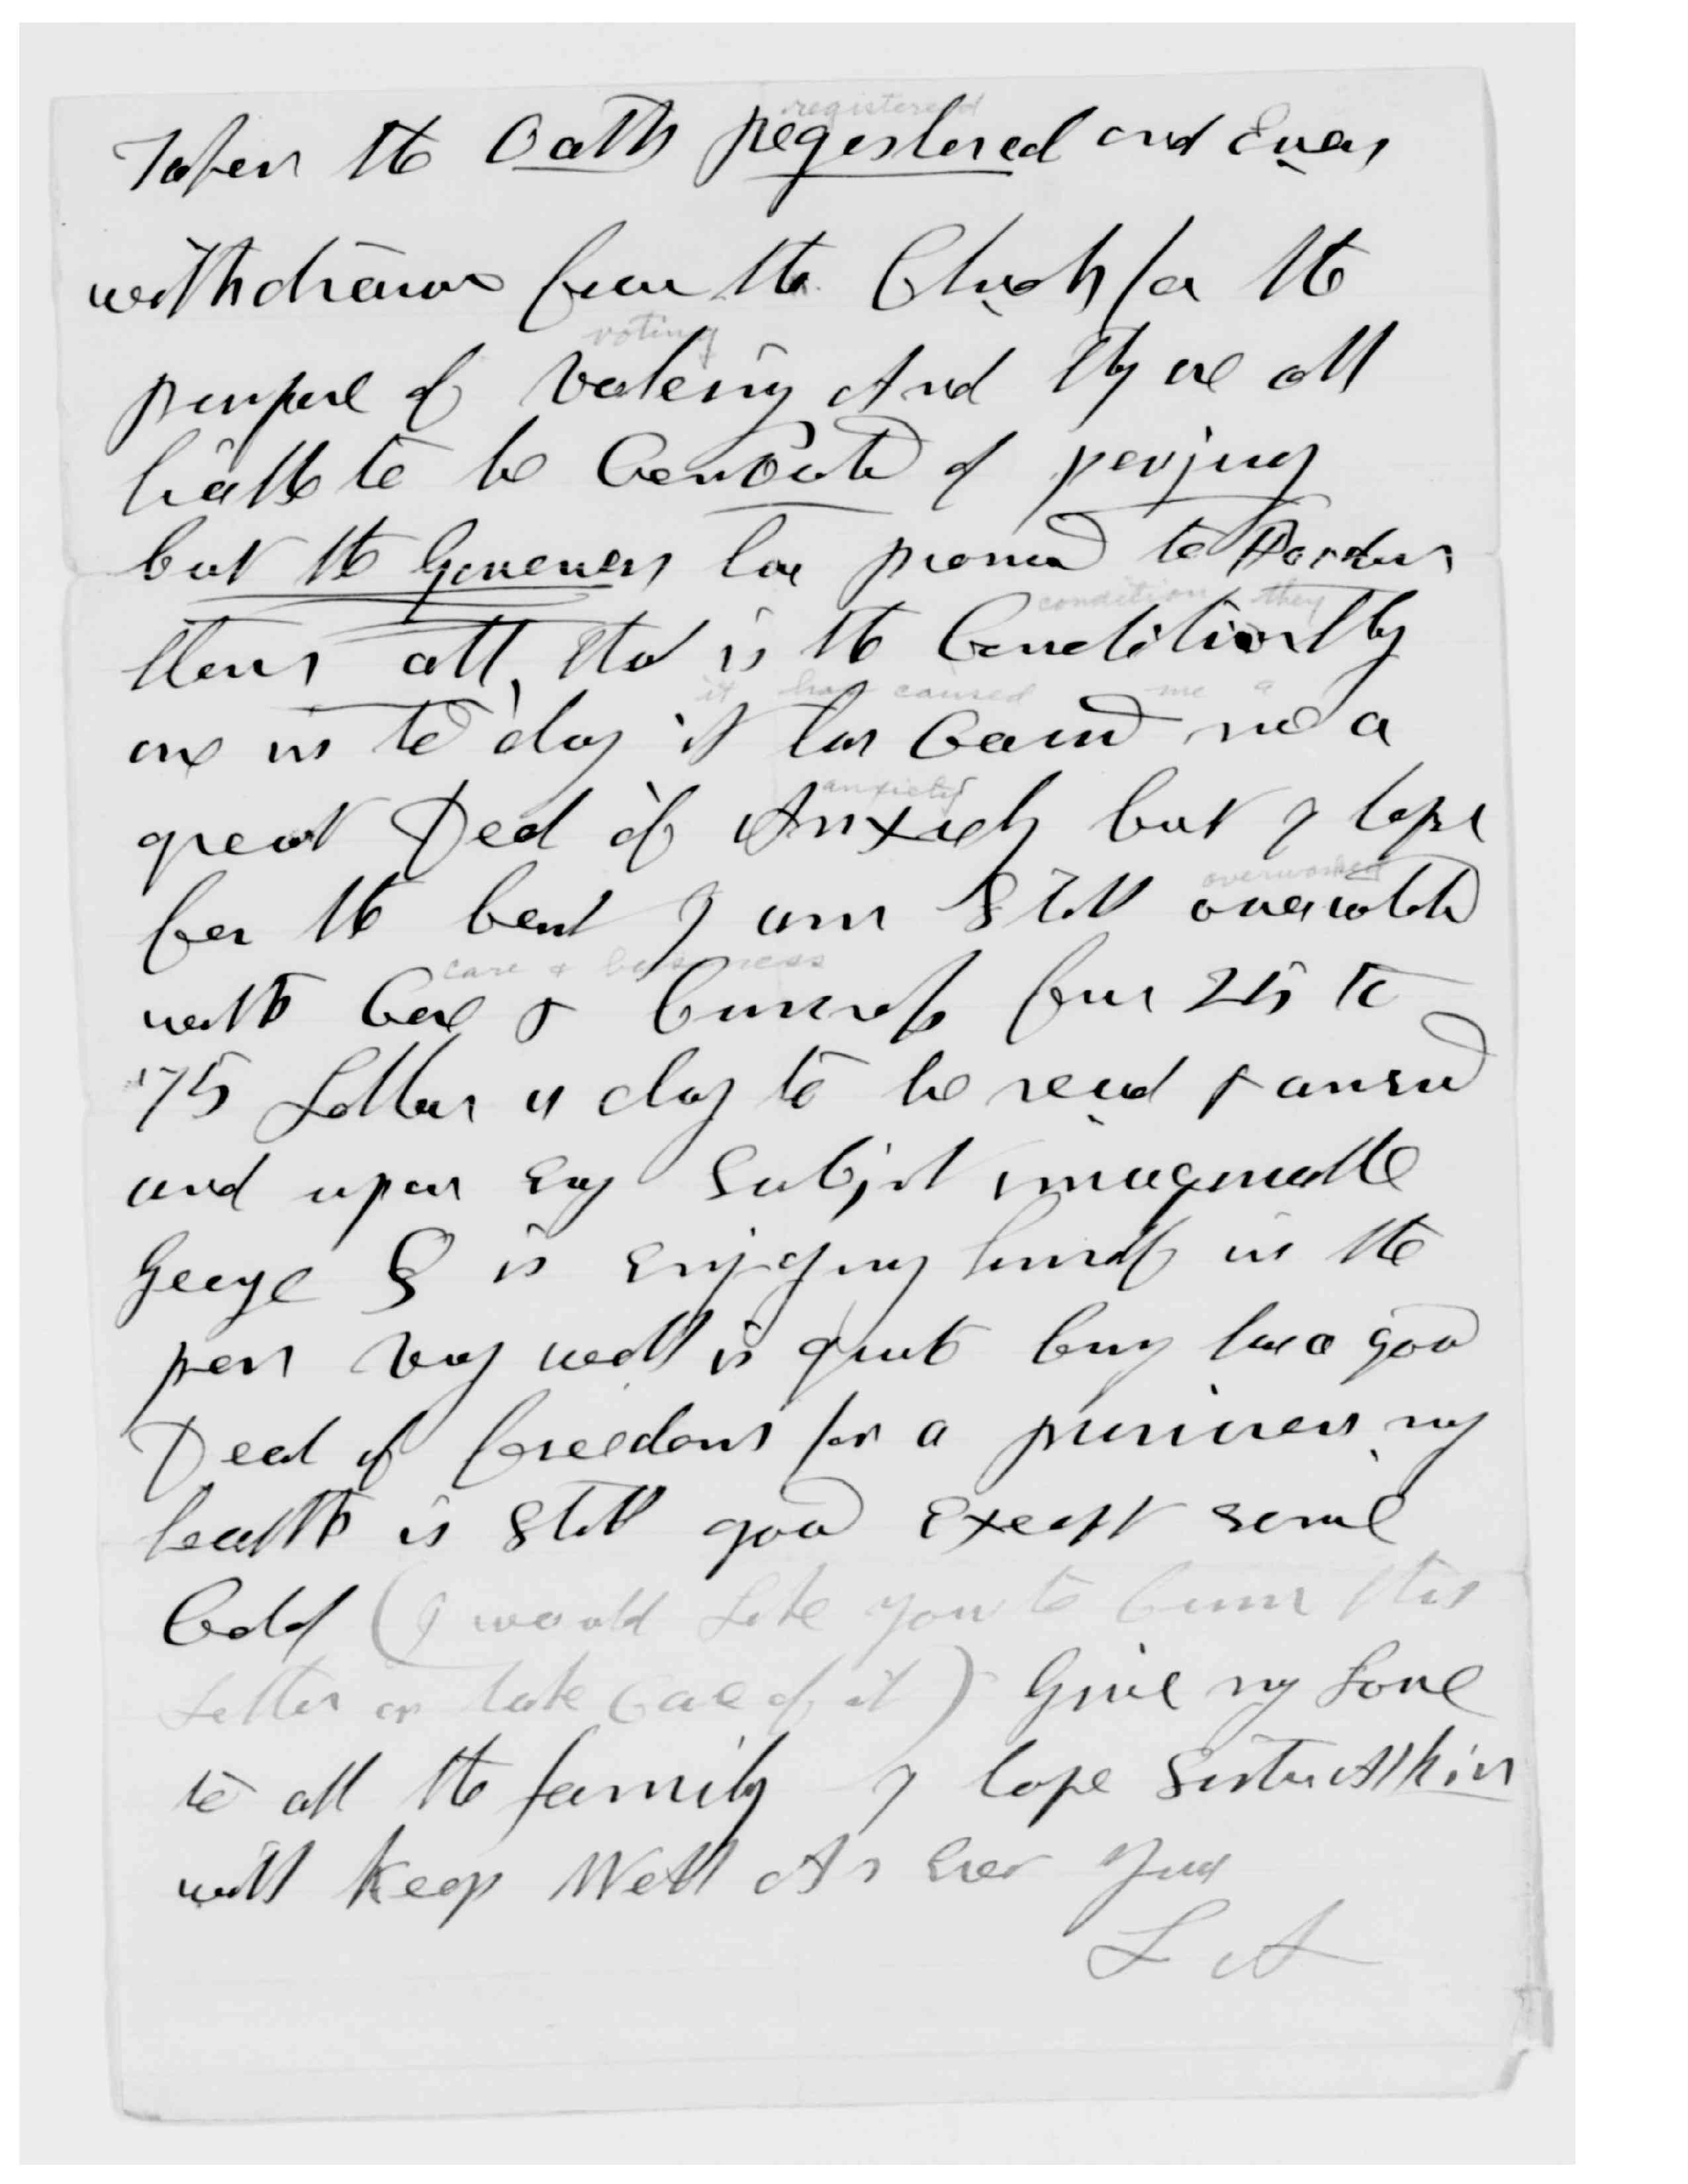 registered
Taken the Oath Registered and Even
withdrawn from the Church for the
voting
purpose of Voteing And they are all
liable to be Convicted of perjury
but the Govenor has promised to Pardon
condition they
them all, that is the Condition they
it has caused me a
are in to day it has Caused me a
anxiety
great Deal of Anxiety but I hope
overworked
for the best I am Still overworked
care & business
with Care & Business from 25 to
75 Letters a day to be read & answered
and upon Every Subject imaginable
George Q is Enjoying himself in the
pen very well is quite busy has a good
Deal of freedom for a prisioner my
health is Still good Except some
Cold (I would Like you to burn this
Letter or take Care of it) Give my Love
to all the family I hope Sister Atkin
will Keep Well As Ever Your
L A